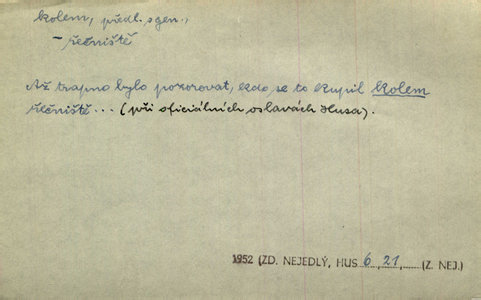 kolem, předl. s gen.,
– řečniště
Až trapno bylo pozorovat, kdo se to kupil kolem
řečniště... (při oficiálních oslavách Husa).
1952 (ZD. NEJEDLÝ, HUS 6, 21, (Z. NEJ.)